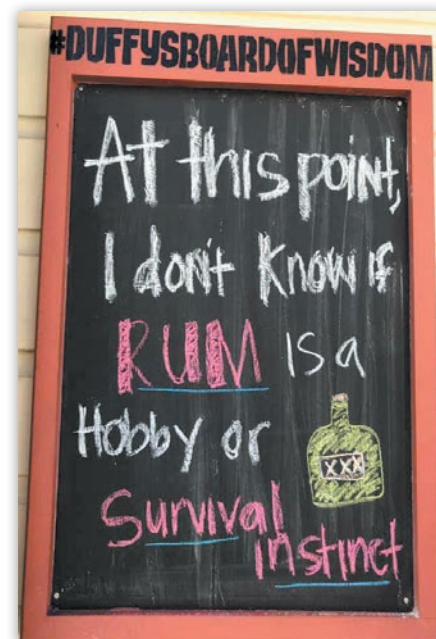 #DUFFYSBOARDOFWISDOM
At this point,
I don't know if
RUM is a
Hobby or
XXX
Survival
instinct